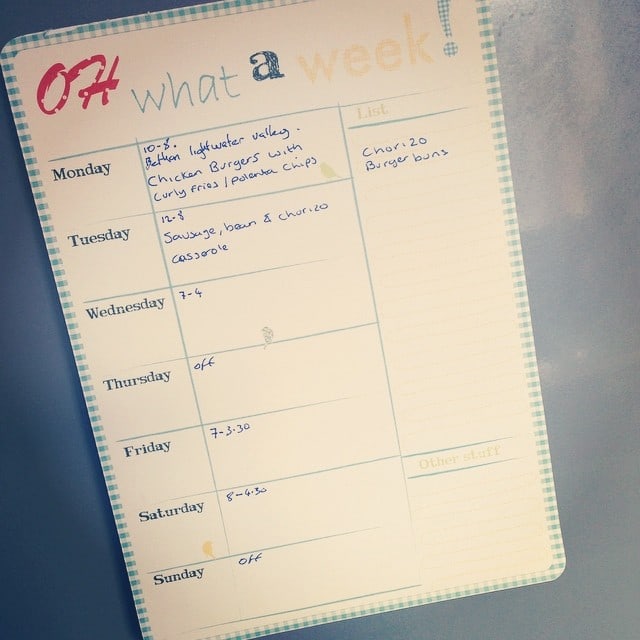 OH what a week!
Monday
10-8.
Bethan lightwater valley.
Chicken Burgers with
Curly fries / Polenta Chips
Tuesday
12-8
Sausage, bean & chorizo
casserole
Wednesday
7-4
Thursday
off
Friday
7-3.30
Saturday
8-4.30
Sunday
off
List
Chorizo
Burger buns
Other stuff